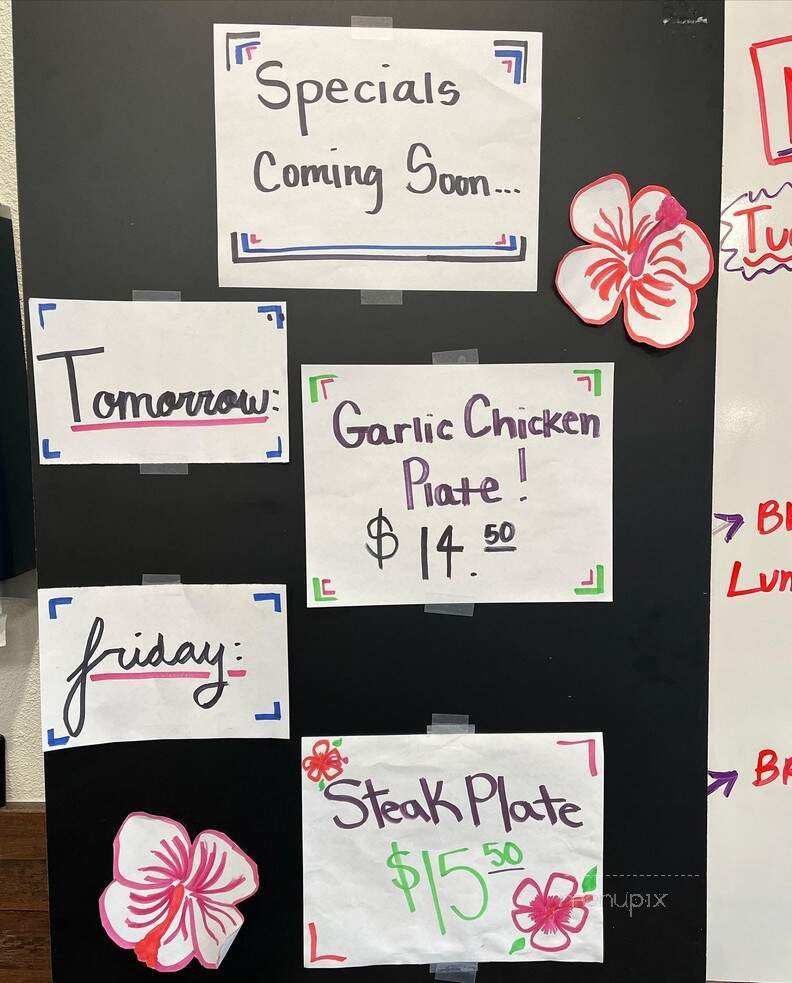 Specials
Coming Soon...
Tomorrow:
Garlic Chicken
Plate!
$14.50
friday:
Steak Plate
$15 50